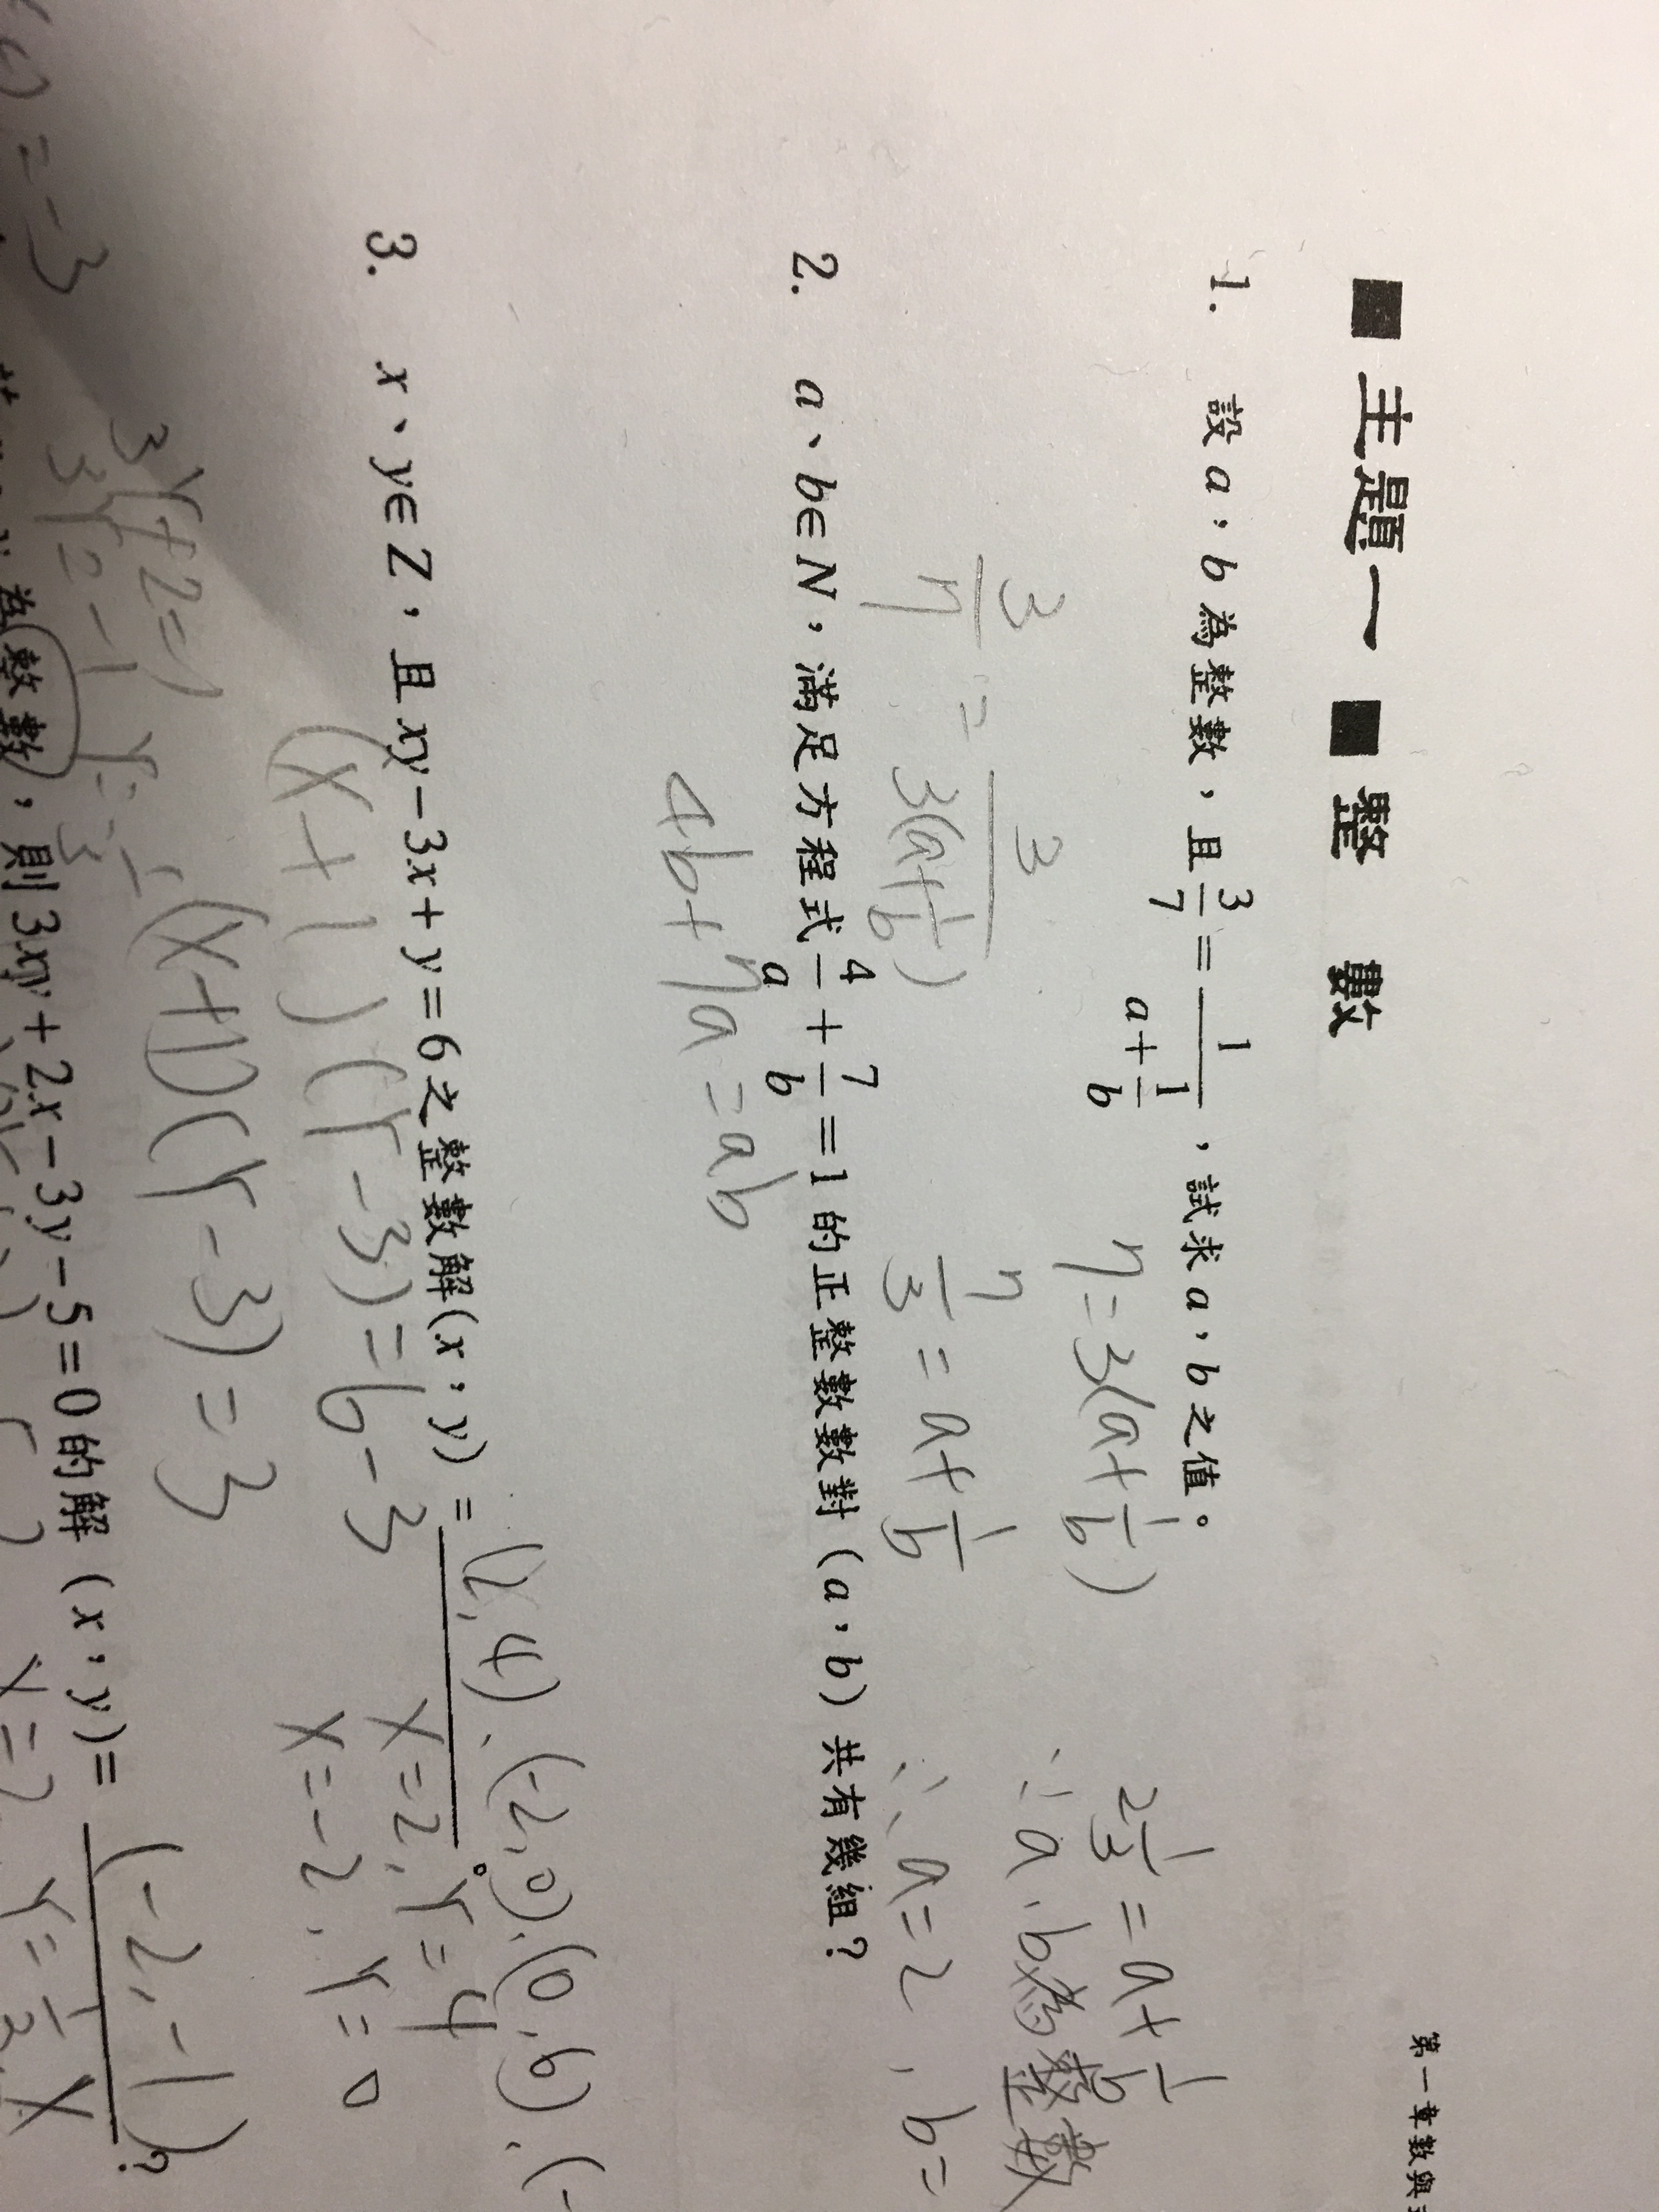 第一章數與
■ 主題一 ■ 整 數
1. 設 a,b 為整數,且 3/7 = 1/(a+1/b),試求 a,b 之值。
7=3(a+1/b)
2 1/3 = a+1/b
3/7 = 3/3(a+1/b)
7/3 = a+1/b
∵a.b為整數
∴a=2,b=
2. a、b∈N,滿足方程式 4/a + 7/b = 1 的正整數數對(a,b)共有幾組?
4b+7a=ab
3. x、y∈Z,且 xy-3x+y=6 之整數解(x,y)= (2,4).(-2,0).(0,6).(-
(x+1)(y-3)=6-3
x=2,y=4
x=-2,y=0
(x+1)(y-3)=3
3y+2=1
3y=-1
y=-1/3
)=-3
整數,則 3xy+2x-3y-5=0 的解(x,y)= (-2,-1)?